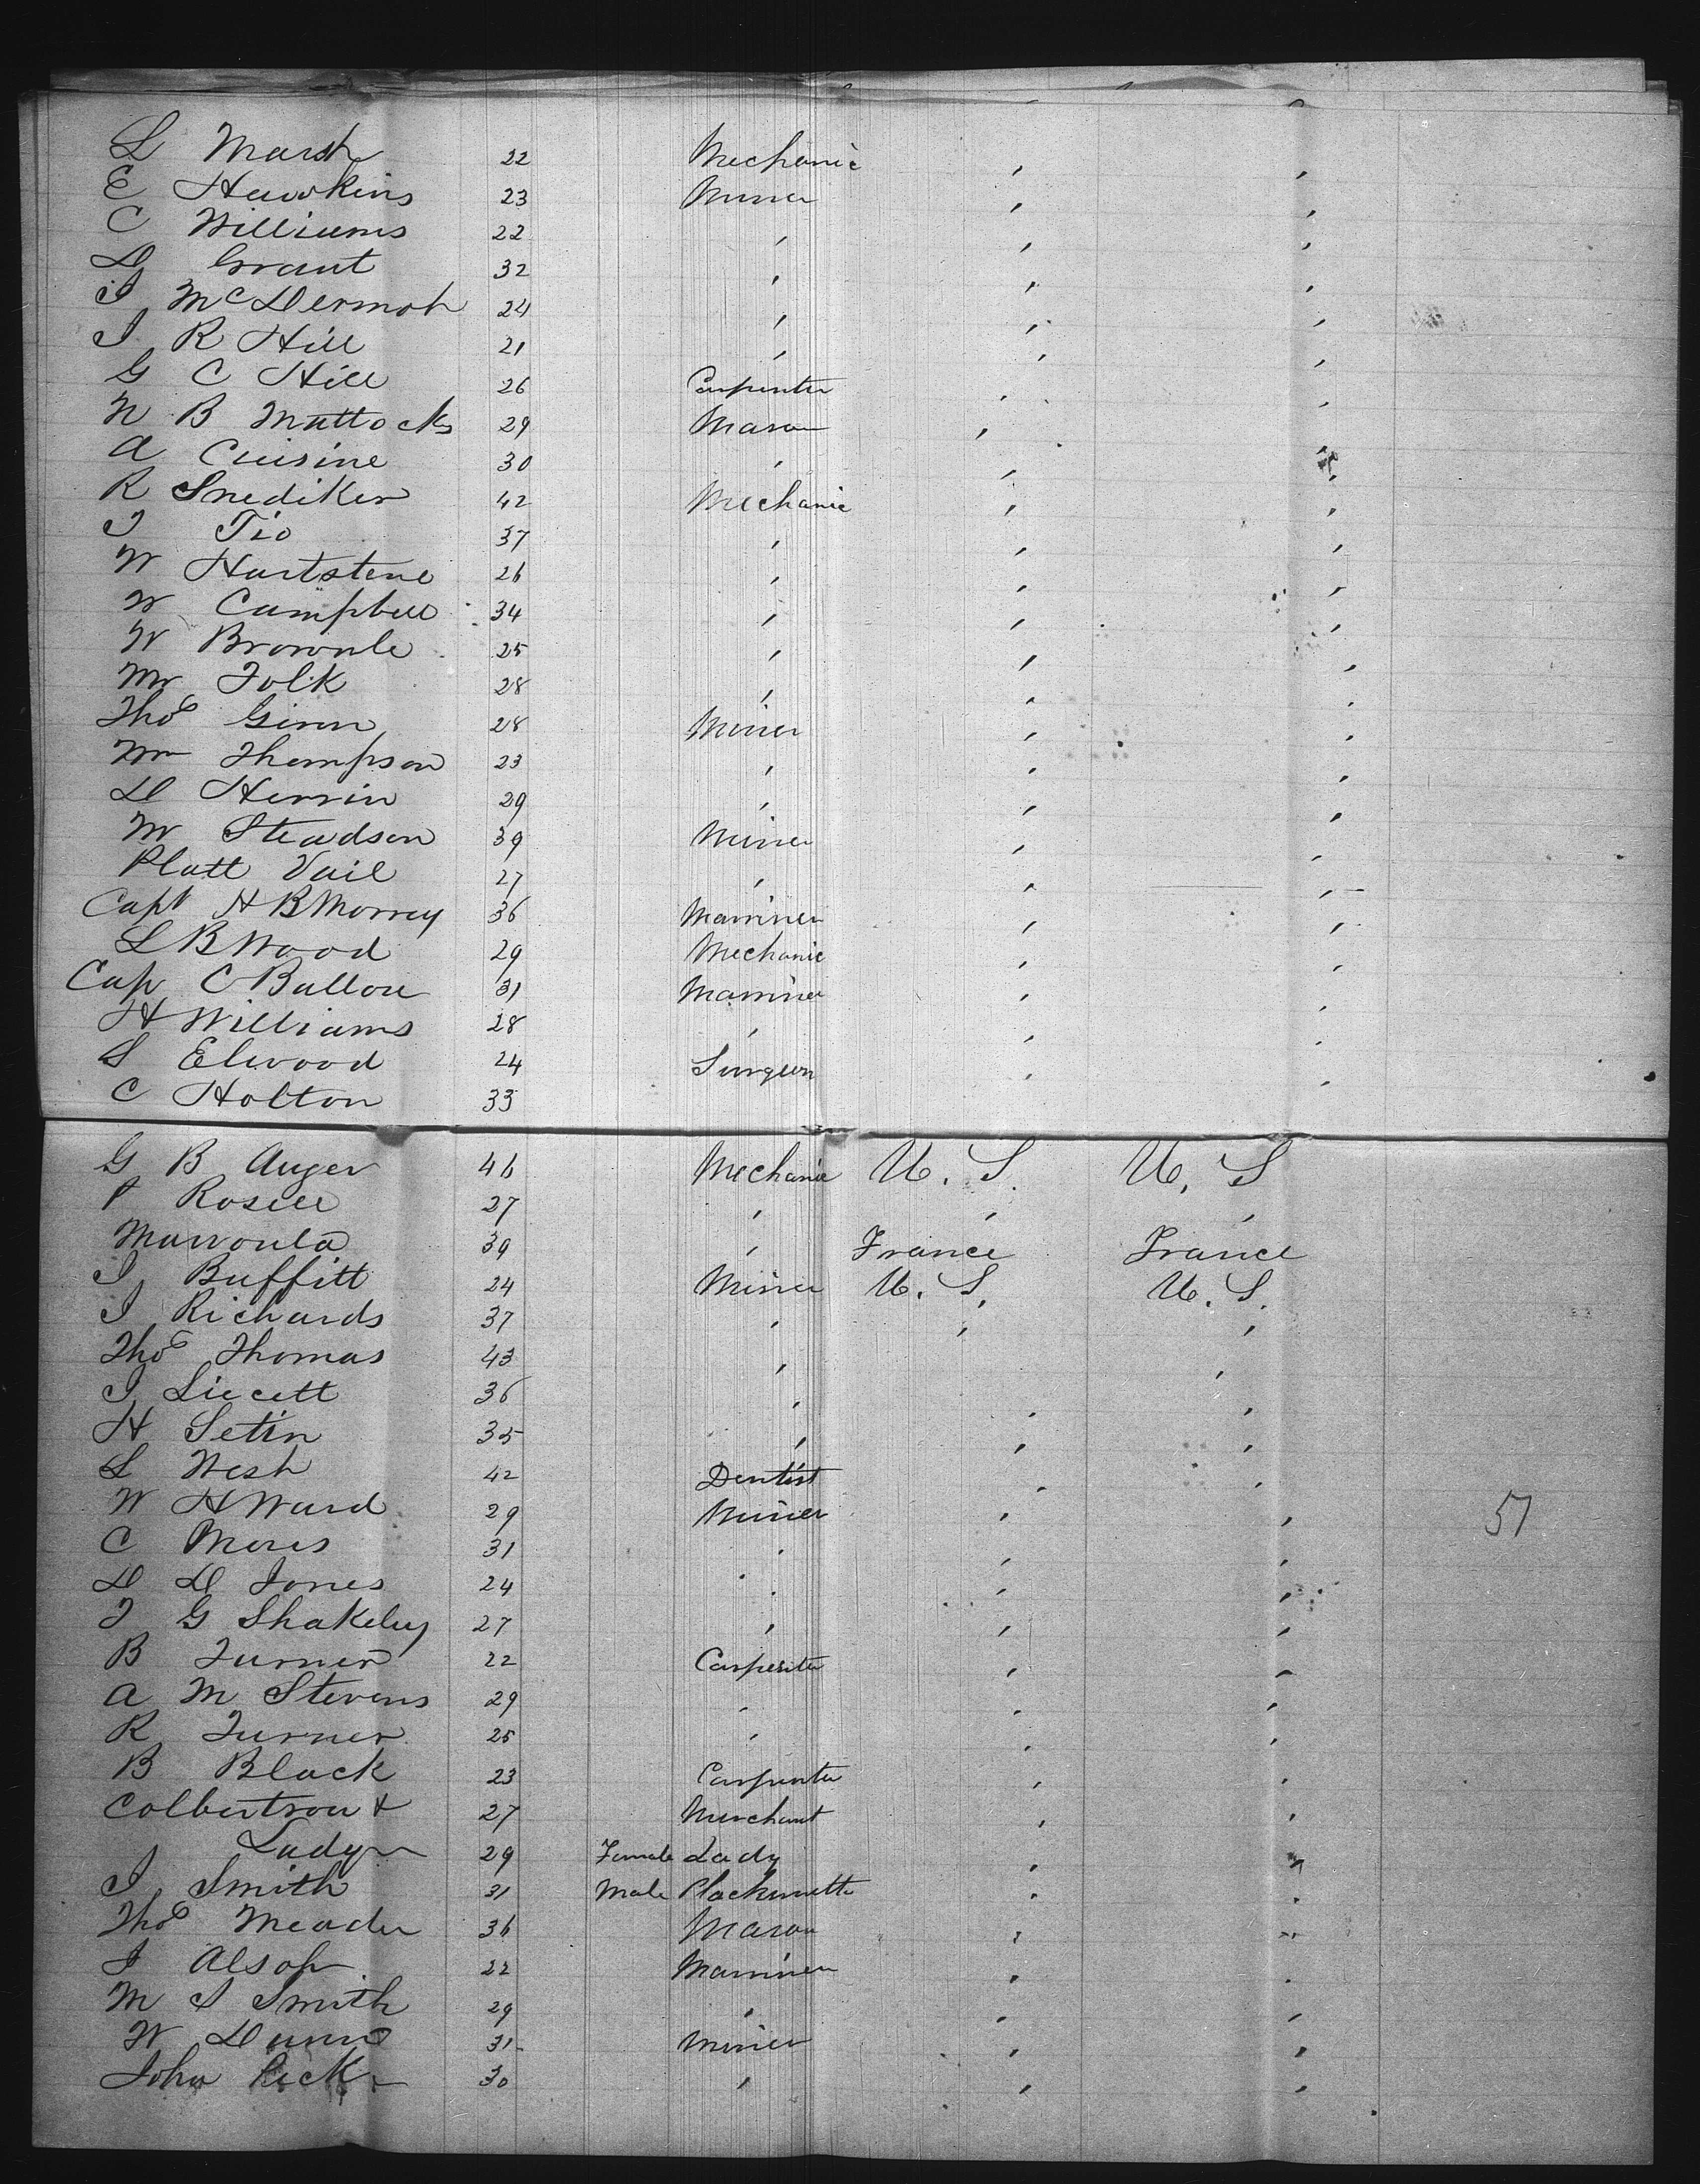 L Marsh 22 Mechanic , ,
E Hawkins 23 Miner , ,
C Williams 22 , , ,
D Grant 32 , , ,
J McDermot 24 , , ,
J R Hill 21 , , ,
G C Hill 26 Carpenter , ,
N B Mattocks 29 Mason , ,
A Cuisine 30 , , ,
R Snediker 42 Mechanic , ,
J Tio 37 , , ,
W Hartstene 26 , , ,
W Campbell 34 , , ,
W Brownle 25 , , ,
Mr Folk 28 , , ,
Thos Ginn 28 Miner , ,
Wm Thompson 23 , , ,
D Herrin 29 , , ,
W Steadson 39 Miner , ,
Platt Vail 27 , , ,
Capt H B Morrey 36 Marriner , ,
L B Wood 29 Mechanic , ,
Cap C Ballou 31 Marriner , ,
H Williams 28 , , ,
S Elwood 24 Surgeon , ,
C Holton 33
G B Auger 46 Mechanic U. S. U. S
P Rosell 27 , , ,
Marroula 39 , France France
J Buffitt 24 Miner U. S. U. S.
J Richards 37 , , ,
Thos Thomas 43 , ,
J Liecett 36 , , ,
H Setin 35 , , ,
L West 42 Dentist , ,
W H Ward 29 Miner , ,
C Mores 31 , , ,
D D Jones 24 , , ,
J G Shakeley 27 , , ,
B Turner 22 Carpenter , ,
A M Stevens 29 , , ,
R Turner 25 , , ,
B Black 23 Carpenter , ,
Colbertson & 27 Merchant , ,
Lady 29 Female Lady , "
J Smith 31 Male Blacksmith , ,
Thos Meader 36 Mason , "
J Alsop 22 Marriner , ,
M S Smith 29 , , ,
W Dunn 31 Miner , ,
John Peck 30 , , ,
51